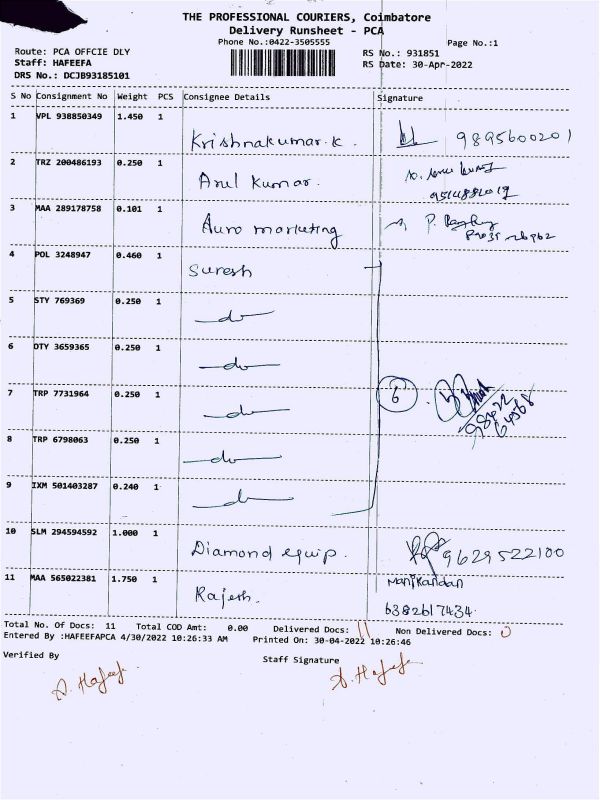 THE PROFESSIONAL COURIERS, Coimbatore
Delivery Runsheet - PCA
Phone No.:0422-3505555
Page No.:1
Route: PCA OFFCIE DLY
RS No.: 931851
Staff: HAFEEFA
RS Date: 30-Apr-2022
DRS No.: DCJB93185101
S No Consignment No Weight PCS Consignee Details Signature
1 VPL 938850349 1.450 1
Krishnakumar.k. 9895600201
2 TRZ 200486193 0.250 1
Arul kumar.
3 MAA 289178758 0.101 1
Auro marketing P.
4 POL 3248947 0.460 1
Suresh
5 STY 769369 0.250 1
do
6 OTY 3659365 0.250 1
do
7 TRP 7731964 0.250 1
do
6
8 TRP 6798063 0.250 1
do
9 IXM 501403287 0.240 1
do
10 SLM 294594592 1.000 1
Diamond equip. 9629522100
11 MAA 565022381 1.750 1
Manikandan
Rajesh. 6382617434
Total No. Of Docs: 11 Total COD Amt: 0.00 Delivered Docs: 11 Non Delivered Docs: 0
Entered By :HAFEEFAPCA 4/30/2022 10:26:33 AM Printed On: 30-04-2022 10:26:46
Verified By Staff Signature
A. Hafeefa
A. Hafeefa